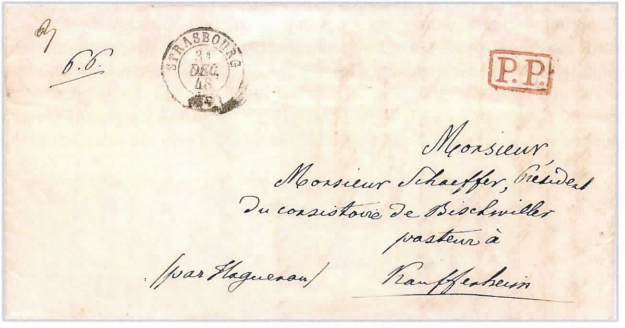 P.P.
STRASBOURG
31
DEC.
48
Monsieur,
Monsieur Schaeffer, Président
du consistoire de Bischwiller
pasteur à
(par Haguenau) Kauffenheim